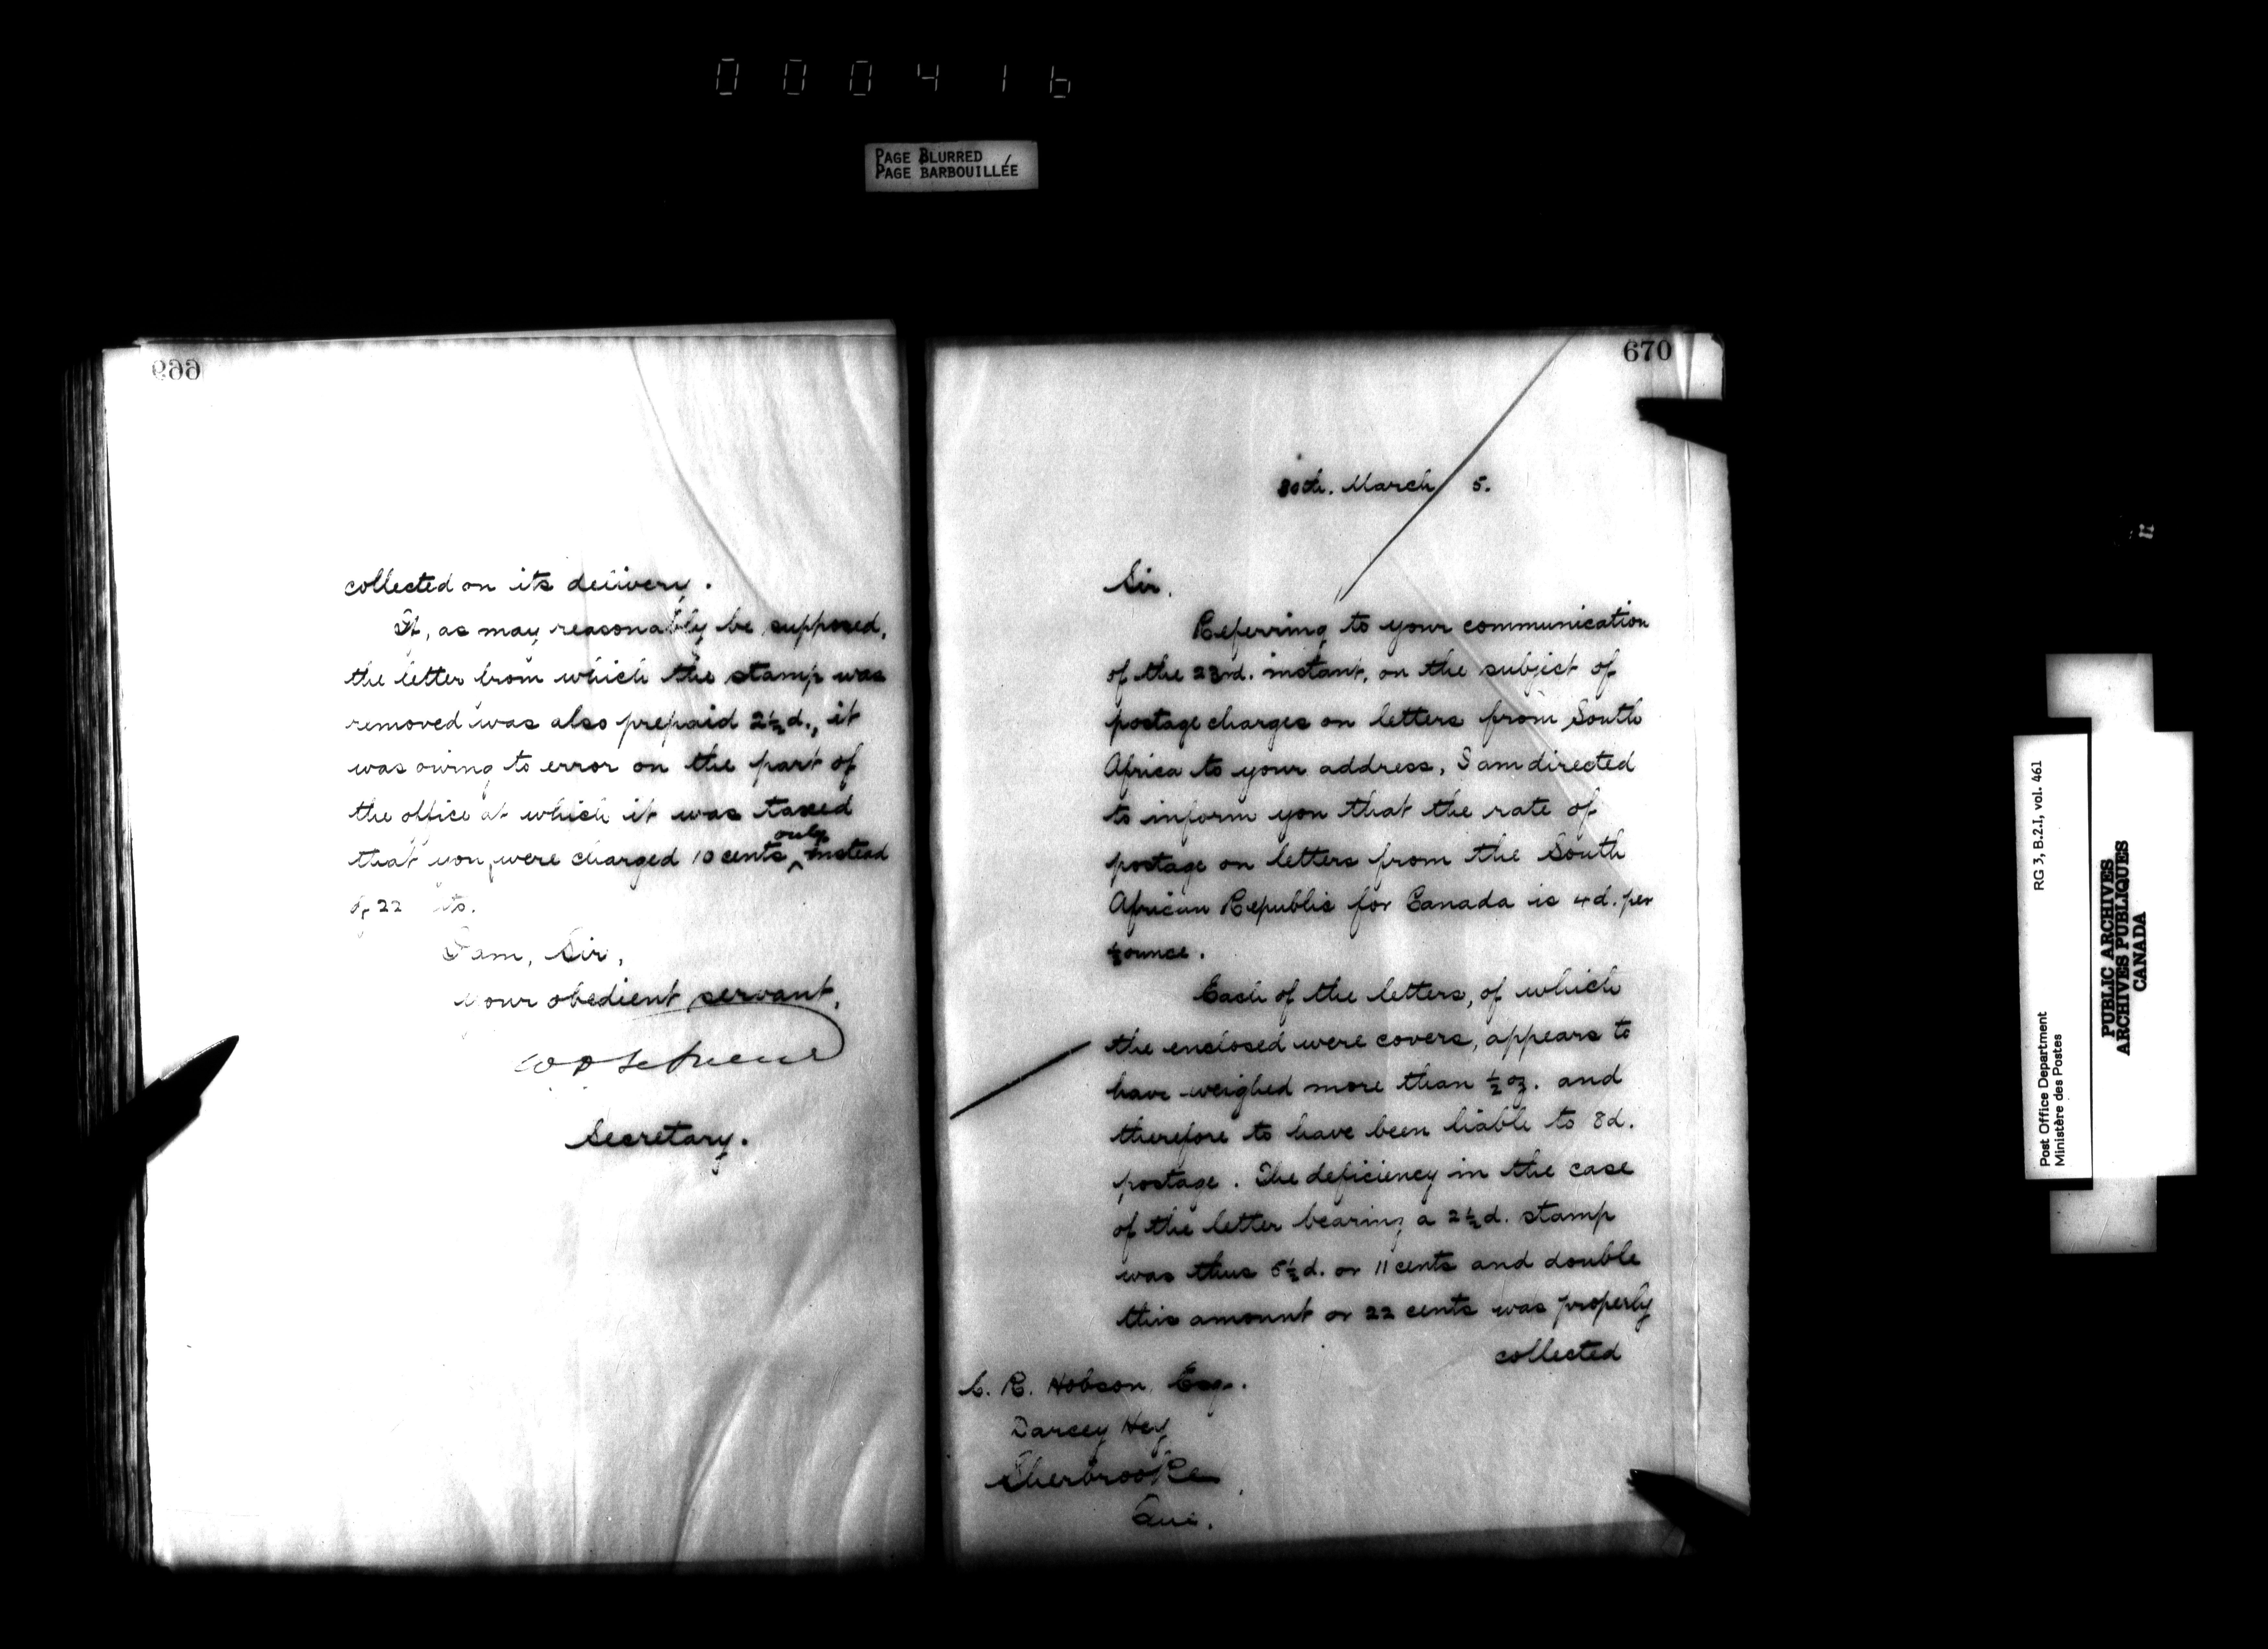 000416
PAGE BLURRED
PAGE BARBOUILLÉE
669
collected on its delivery.
If, as may reasonably be supposed,
the letter from which the stamp was
removed was also prepaid 2½d., it
was owing to error on the part of
the office at which it was taxed
that you were charged 10 cents only instead
of 22
I am, Sir,
Your obedient servant,
Secretary.
670
30th. March 5.
Sir,
Referring to your communication
of the 23rd. instant, on the subject of
postage charges on letters from South
Africa to your address, I am directed
to inform you that the rate of
postage on letters from the South
African Republic for Canada is 4d. per
½ ounce.
Each of the letters, of which
the enclosed were covers, appears to
have weighed more than ½ oz. and
therefore to have been liable to 8d.
postage. The deficiency in the case
of the letter bearing a 2½d. stamp
was thus 5½d. or 11 cents and double
this amount or 22 cents was properly
collected
C. R. Hobson, Esq.
Darcey Hey
Sherbrooke,
Que.
Post Office Department
Ministère des Postes
RG 3, B.2.I, vol. 461
PUBLIC ARCHIVES
ARCHIVES PUBLIQUES
CANADA